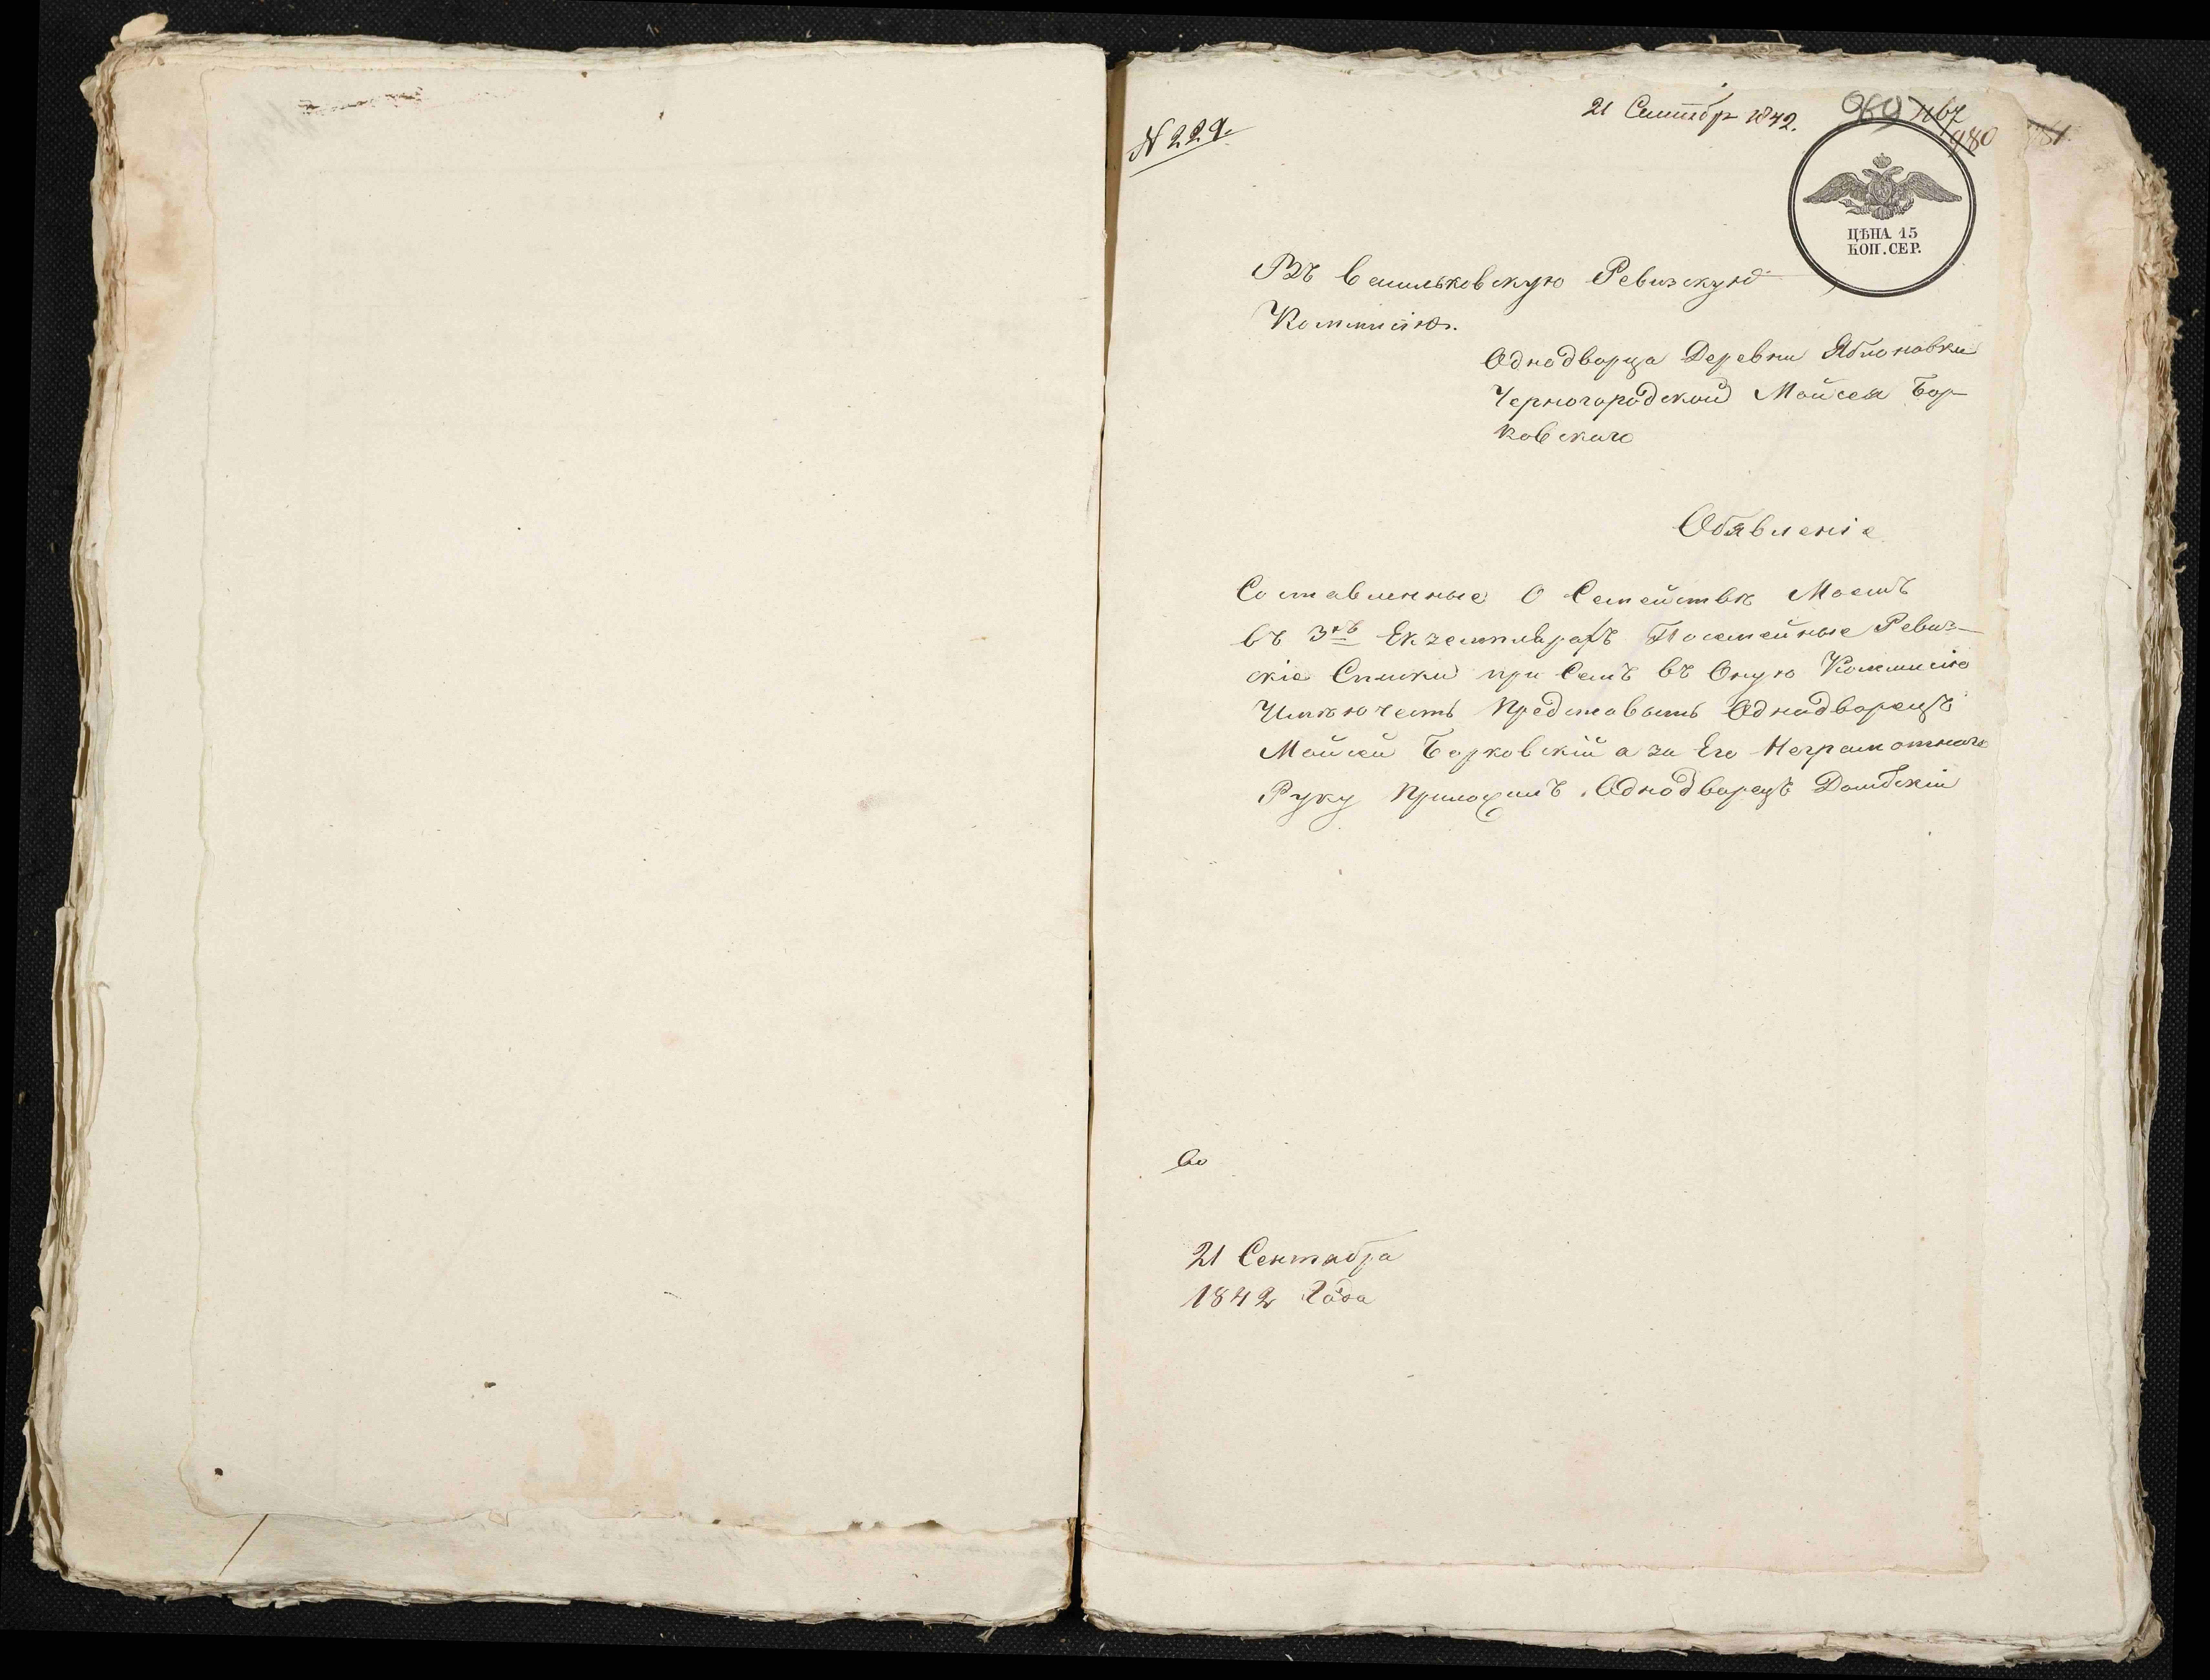 N 229.
21 Сентябр 1842.
969 1167
980 981
ЦѢНА 15
КОП. СЕР.
Въ Васильковскую Ревизскую
Коммисію.
Однодворца Деревни Яблоновки
Черногородской Мойсея Бор-
ковскаго
Обявленіе
Составленные О Семействѣ Моемъ
въ 3хъ Екземплярахъ Посемейные Ревиз-
скіе Списки при Семъ въ Оную Коммисію
Имѣю честь Представыть Однодворецъ
Мойсей Борковскій а за Его Неграмотнаго
Руку Приложилъ Однодворецъ Домбскій
21 Сентабра
1842 Года